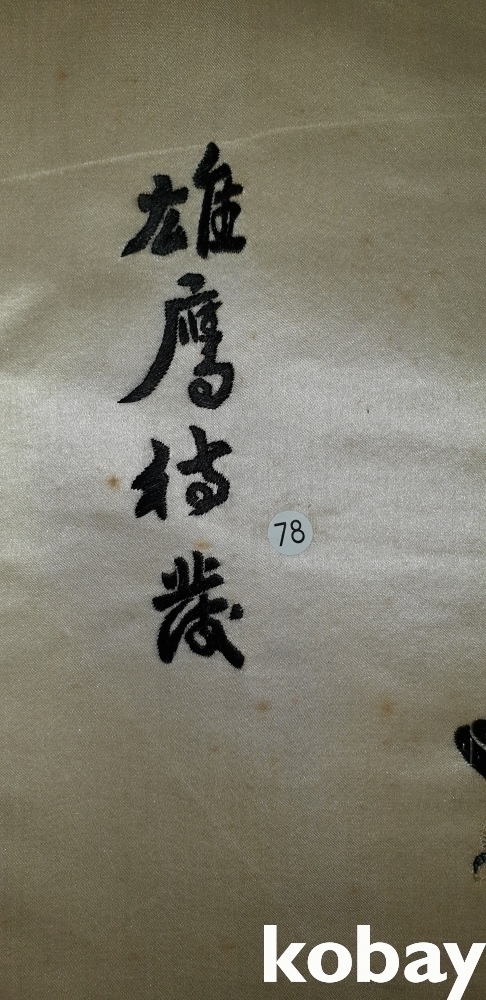 雄鹰待發
78
kobay